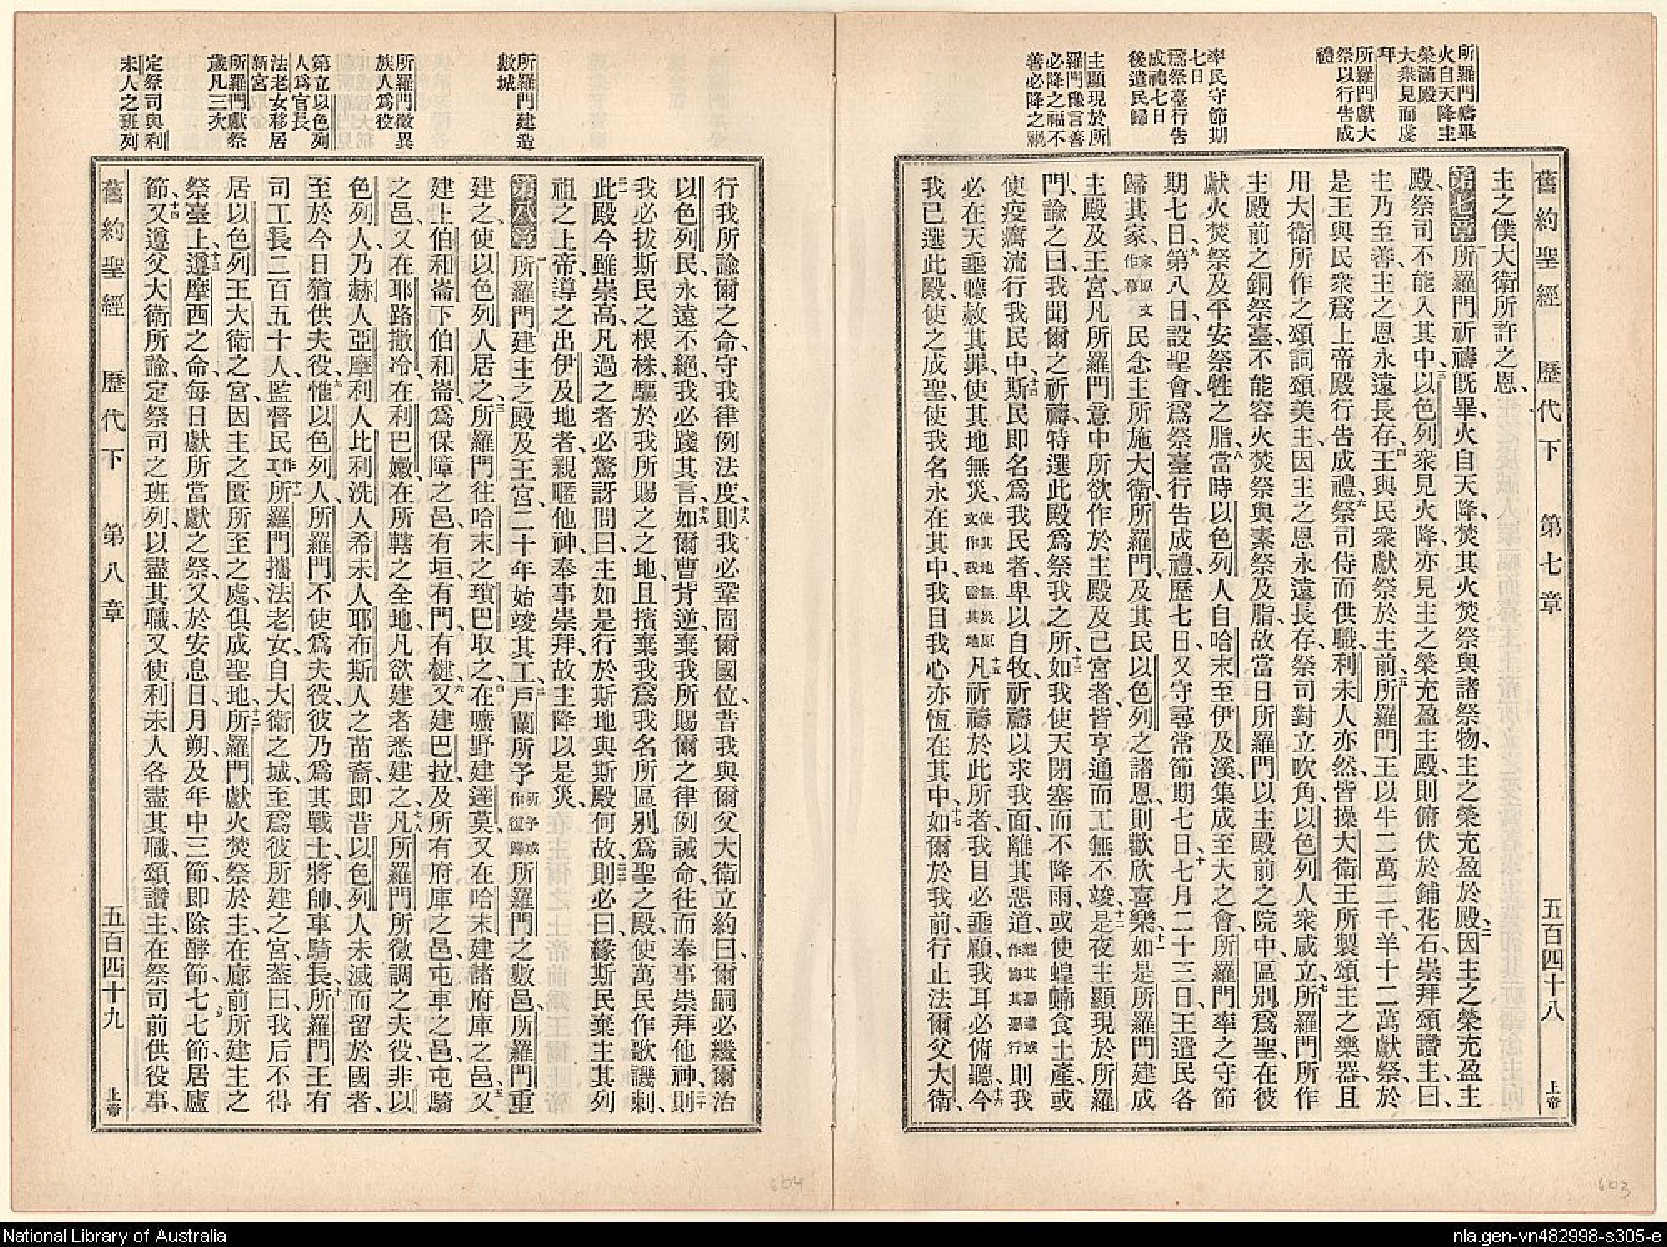 所羅門禱畢
火自天降主
榮滿殿
大衆見而虔
拜
所羅門獻大
祭以行告成
禮
率民守節期
七日
爲祭臺行告
成禮七日
後遣民歸
主顯現於所
羅門豫言善
必降之福不
善必降之禍
舊約聖經 歷代下 第七章 五百四十八 上帝
主之僕大衛所許之恩、
第七章 一所羅門祈禱既畢、火自天降、焚其火焚祭與諸祭物、主之榮充盈於殿、二因主之榮充盈主
殿、祭司不能入其中、三以色列衆見火降、亦見主之榮充盈主殿、則俯伏於鋪花石、崇拜頌讚主曰、
主乃至善、主之恩永遠長存、四王與民衆獻祭於主前、五所羅門王以牛二萬二千、羊十二萬獻祭、於
是王與民衆爲上帝殿行告成禮、六祭司侍而供職、利未人亦然、皆操大衛王所製頌主之樂器、且
用大衛所作之頌詞頌美主、因主之恩永遠長存、祭司對立吹角、以色列人衆咸立、七所羅門所作
主殿前之銅祭臺、不能容火焚祭與素祭及脂、故當日所羅門以主殿前之院中、區別爲聖、在彼
獻火焚祭、及平安祭牲之脂、八當時以色列人自哈末至伊及溪、集成至大之會、所羅門率之守節
期七日、九第八日、設聖會、爲祭臺行告成禮、歷七日、又守尋常節期七日、十七月二十三日、王遣民各
歸其家、家原文作幕民念主所施大衛、所羅門、及其民以色列之諸恩、則歡欣喜樂、十一如是所羅門建成
主殿及王宮、凡所羅門意中所欲作於主殿及己宮者、皆亨通而工無不竣、十二是夜主顯現於所羅
門、諭之曰、我聞爾之祈禱、特選此殿爲祭我之所、十三如我使天閉塞而不降雨、或使蝗蝻食土產、或
使疫癘流行我民中、十四斯民即名爲我民者、卑以自牧、祈禱以求我面、離其惡道、則我
必在天垂聽、赦其罪、使其地無災、使其地無災原文作我醫其地十五凡祈禱於此所者、我目必垂顧、我耳必俯聽、十六今
我已選此殿、使之成聖、使我名永在其中、我目我心亦恆在其中、十七如爾於我前、行止法爾父大衛、
所羅門建造
數城
所羅門徵異
族人爲役
第立以色列
人爲官長
法老女移居
新宮
所羅門獻祭
歲凡三次
定祭司與利
未人之班列
行我所諭爾之命、守我律例法度、十八則我必鞏固爾國位、昔我與爾父大衛立約曰、爾嗣必繼爾治
以色列民、永遠不絕、我必踐其言、十九如爾曹背逆、棄我所賜爾之律例誡命、往而奉事崇拜他神、二十則
我必拔斯民之根株、驅於我所賜之之地、且擯棄我爲我名所區別爲聖之殿、使萬民作歌譏刺、
二一此殿今雖崇高、凡過之者必驚訝問曰、主如是行於斯地與斯殿何故、二二則必曰、緣斯民棄主其列
祖之上帝、導之出伊及地者、親暱他神、奉事崇拜、故主降以是災、
第八章 一所羅門建主之殿及王宮、二十年始竣其工、二戶蘭所予所予或作復歸所羅門之數邑、所羅門重
建之、使以色列人居之、三所羅門往哈末之瑣巴取之、四在曠野建達莫、又在哈末建諸府庫之邑、五又
建上伯和崙、下伯和崙、爲保障之邑、有垣有門、有楗、六又建巴拉、及所有府庫之邑、屯車之邑、屯騎
之邑、又在耶路撒冷、在利巴嫩、在所轄之全地、凡欲建者、悉建之、七八凡所羅門所徵調之夫役、非以
色列人、乃赫人、亞摩利人、比利洗人、希未人、耶布斯人之苗裔、即昔以色列人未滅而留於國者、
至於今日猶供夫役、九惟以色列人、所羅門不使爲夫役、彼乃爲其戰士將帥車騎長、十所羅門王有
司工長二百五十人監督民作工、十一所羅門攜法老女、自大衛之城、至爲彼所建之宮、蓋曰、我后不得
居以色列王大衛之宮、因主之匱所至之處、俱成聖地、十二所羅門獻火焚祭於主、在廊前所建主之
祭臺上、十三遵摩西之命、每日獻所當獻之祭、又於安息日、月朔、及年中三節、即除酵節、七七節、居廬
節、十四又遵父大衛所諭、定祭司之班列、以盡其職、又使利未人各盡其職、頌讚主、在祭司前供役事、
舊約聖經 歷代下 第八章 五百四十九 上帝
604
603
National Library of Australia
nla.gen-vn482998-s305-e